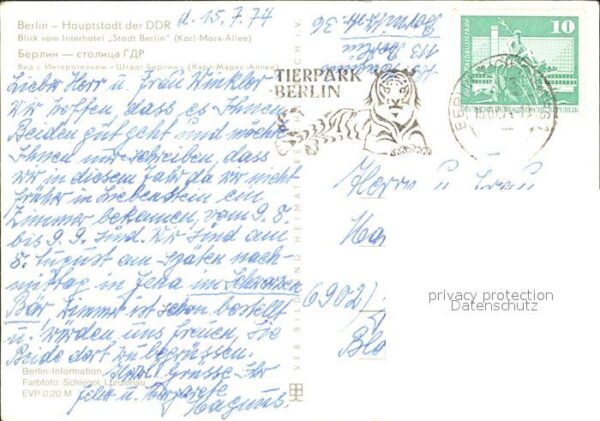 Berlin – Hauptstadt der DDR
Blick vom Interhotel „Stadt Berlin" (Karl-Marx-Allee)
Берлин — столица ГДР
Вид с Интеротеля «Штадт Берлин» (Карл-Маркс-Аллее)
d. 15.7.74
Liebe Herr u. Frau Winkler
Wir hoffen, dass es Ihnen
Beiden gut geht und möchte
Ihnen nur schreiben, dass
wir in diesem Jahr da wir nicht
früher in Liebenstein ein
Zimmer bekamen, vom 9. 8.
bis 9. 9. sind. Wir sind am
8. August am späten nach-
mittag in Jena im Schwarzen
Bär Zimmer ist schon bestellt
u. würden uns freuen, Sie
Beide dort zu begrüssen.
Grüsse Ihr
Felix u.
Magnus.
Berlin-Information
Farbfoto: Schlegel, Lunzenau
EVP 0,20 M
VEB BILD UND HEIMAT REICHENBACH I. V.
113 Berlin
36
TIERPARK
BERLIN
10
Herrn u Frau
Ha
6902
Blo
privacy protection
Datenschutz